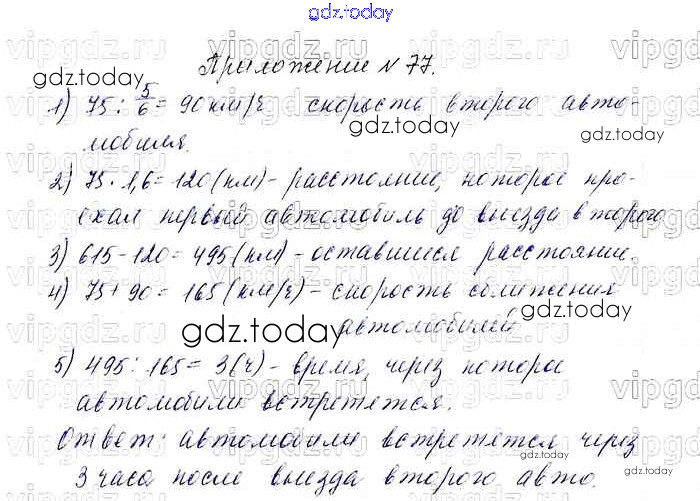 gdz.today
Приложение N 77.
1) 75 : 5/6 = 90 км/ч скорость второго авто-
мобиля.
2) 75 · 1,6 = 120 (км) - расстояние, которое про-
ехал первый автомобиль до выезда второго
3) 615 - 120 = 495 (км) - оставшиеся расстояние.
4) 75 + 90 = 165 (км/ч) - скорость сближения
автомобилей
5) 495 : 165 = 3 (ч) - время, через которое
автомобили встретятся.
Ответ: автомобили встретятся через
3 часа после выезда второго авто.